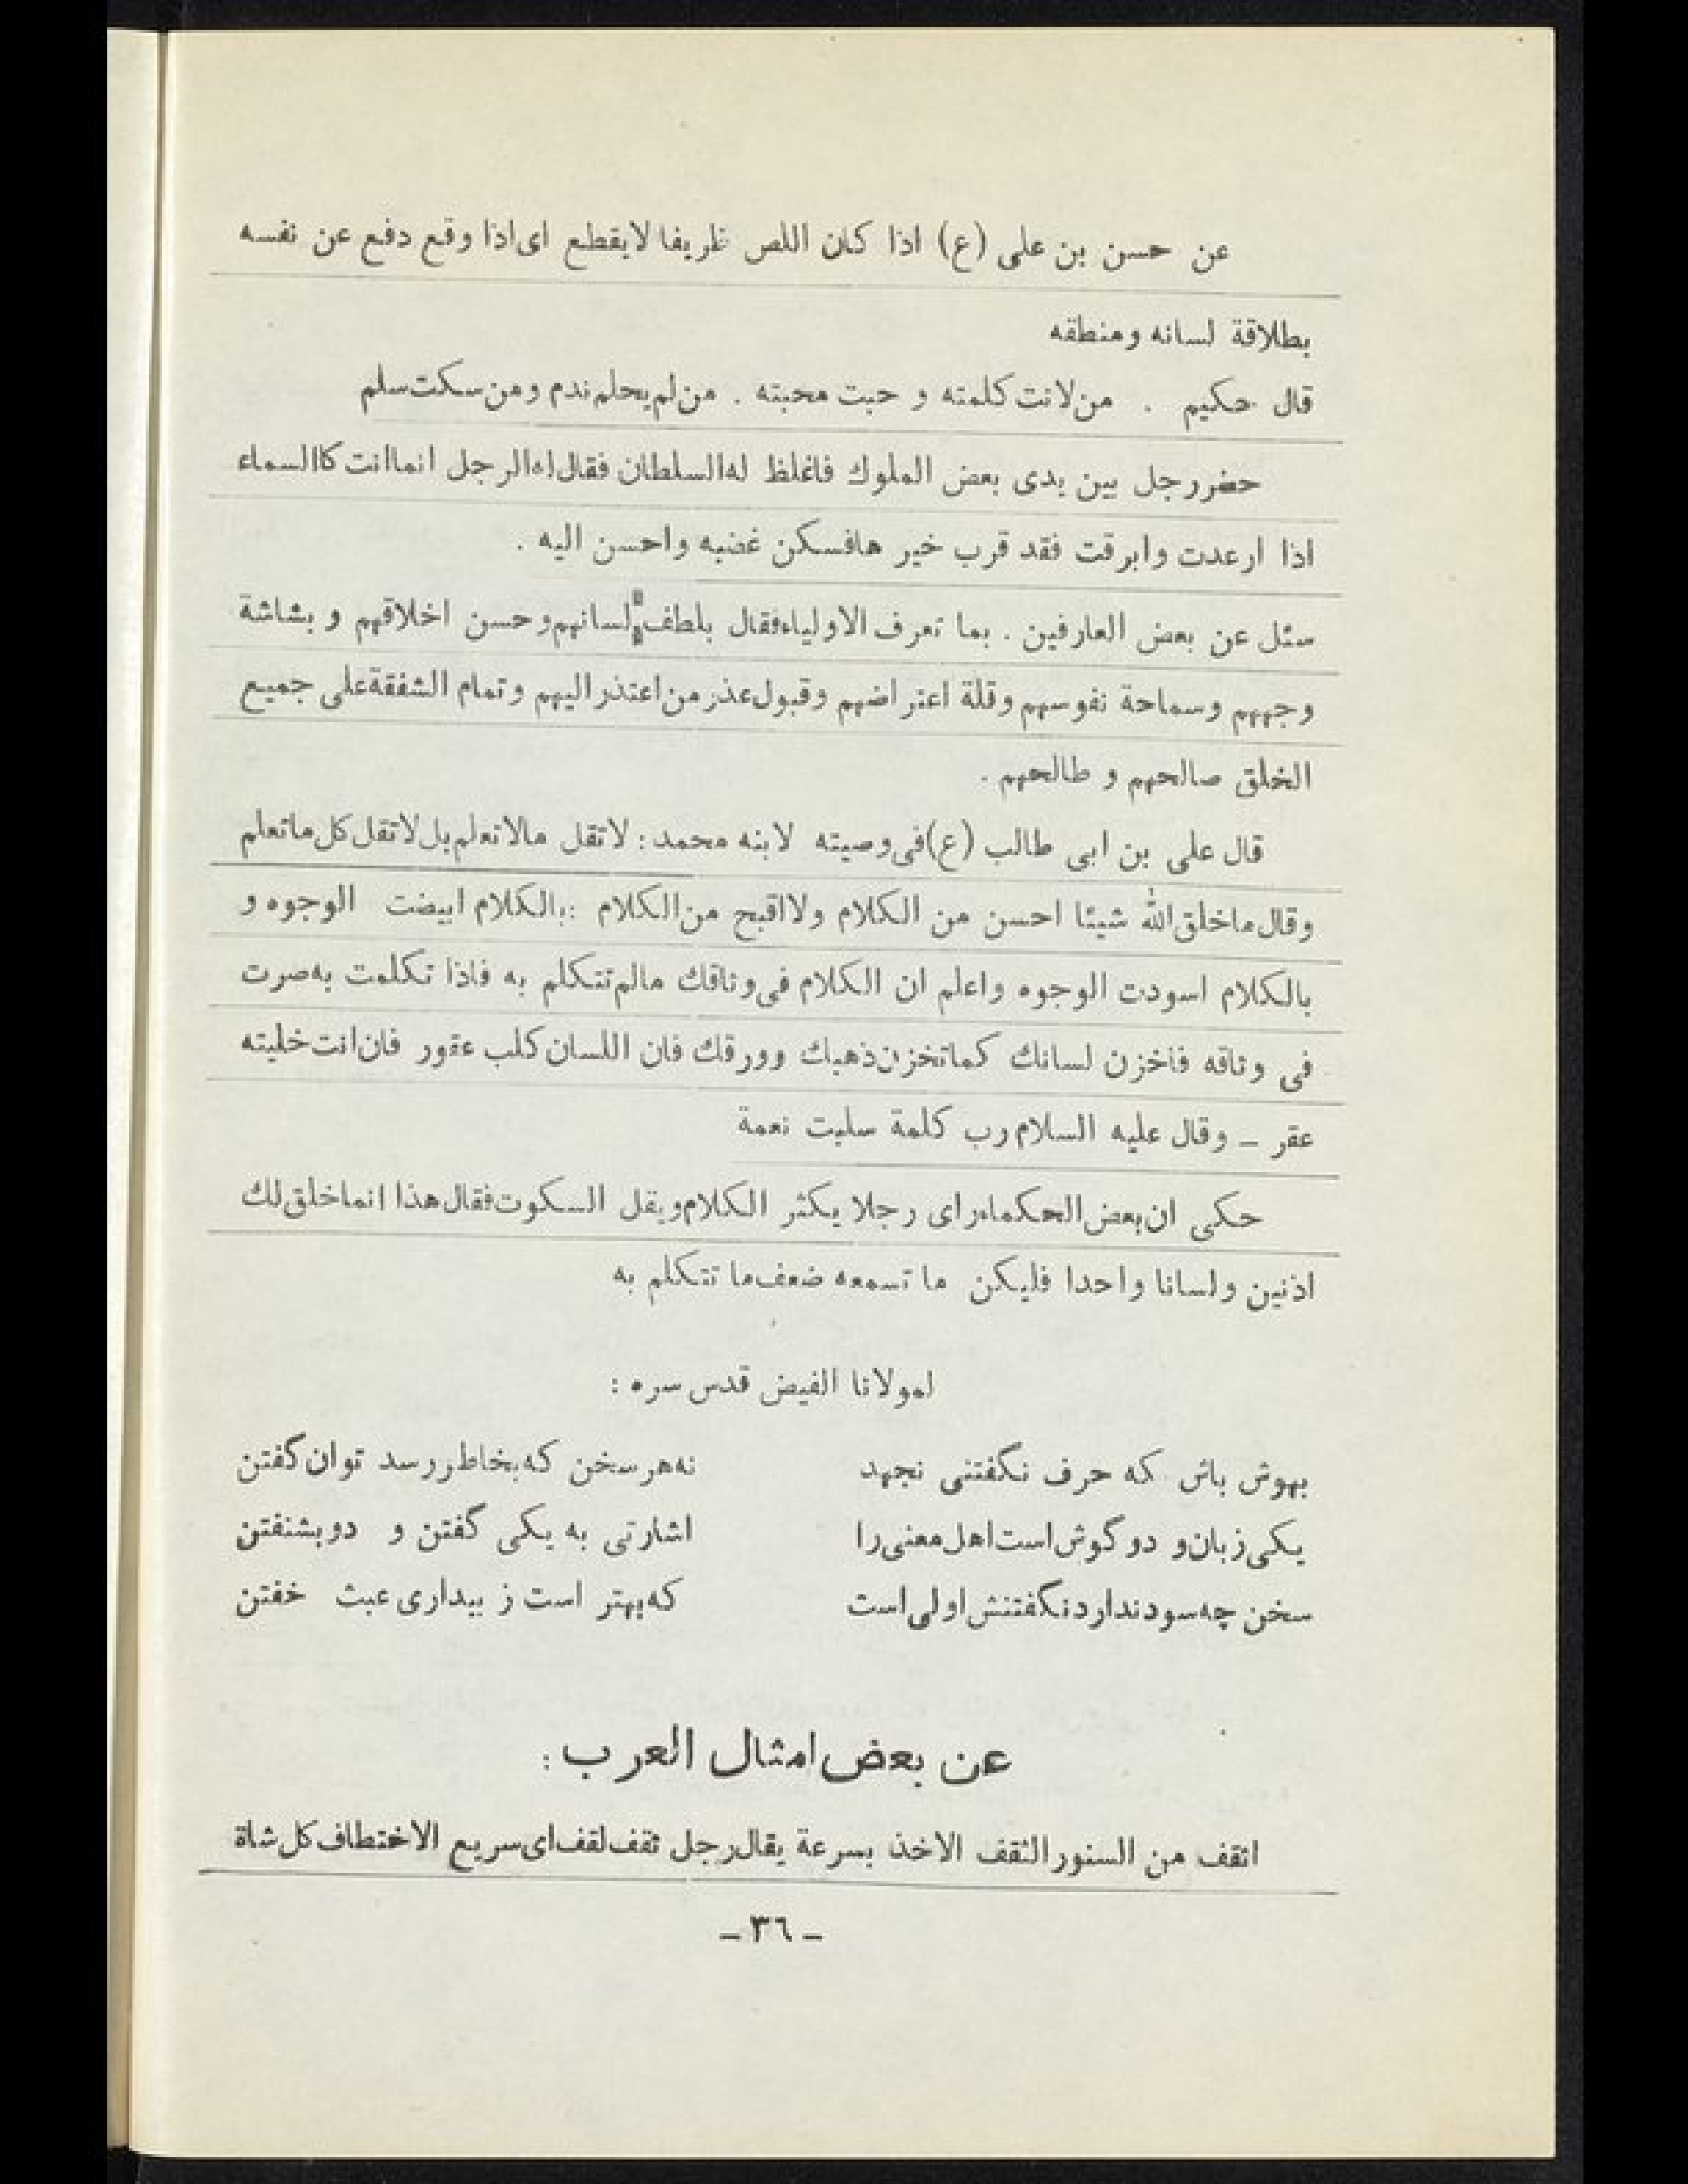 عن حسن بن علی (ع) اذا كان اللص ظریفا لایقطع ای‌اذا وقع دفع عن نفسه
بطلاقة لسانه ومنطقه
قال حکیم . من‌لانت‌کلمته و حبت محبته . من‌لم‌یحلم‌ندم ومن‌سکت‌سلم
حضررجل بین یدی بعض الملوك فاغلظ له‌السلطان فقال‌له‌الرجل انماانت‌کاالسماء
اذا ارعدت وابرقت فقد قرب خیر هافسکن غضبه واحسن الیه .
سئل عن بعض العارفین . بما تعرف الاولیاءفقال بلطف لسانهم‌وحسن اخلاقهم و بشاشة
وجههم وسماحة نفوسهم وقلة اعتراضهم وقبول‌عذر من‌اعتذرالیهم وتمام الشفقةعلی جمیع
الخلق صالحهم و طالحهم .
قال علی بن ابی طالب (ع)فی‌وصیته لابنه محمد : لاتقل مالاتعلم‌بل‌لاتقل‌کل‌ماتعلم
وقال‌ماخلق‌الله شیئا احسن من الکلام ولااقبح من‌الکلام :بالکلام ابیضت الوجوه و
بالکلام اسودت الوجوه واعلم ان الکلام فی‌وثاقك مالم‌تتکلم به فاذا تکلمت به‌صرت
فی وثاقه فاخزن لسانك کماتخزن‌ذهبك وورقك فان اللسان‌کلب عقور فان‌انت‌خلیته
عقر ـ وقال علیه السلام‌رب کلمة سلبت نعمة
حکی ان‌بعض‌الحکماءرای رجلا یکثر الکلام‌ویقل السکوت‌فقال‌هذا انماخلق‌لك
اذنین ولسانا واحدا فلیکن ما تسمعه ضعف‌ما تتکلم به
لمولانا الفیض قدس سره :
بهوش باش که حرف نگفتنی نجهد نه‌هرسخن که‌بخاطررسد توان‌گفتن
یکی‌زبان‌و دو گوش‌است‌اهل‌معنی‌را اشارتی به یکی گفتن و دوبشنفتن
سخن چه‌سودنداردنگفتنش‌اولی‌است که‌بهتر است ز بیداری عبث خفتن
عن بعض امثال العرب :
اثقف من السنورالثقف الاخذ بسرعة یقال‌رجل ثقف‌لقف‌ای‌سریع الاختطاف‌کل‌شاة
ـ ٣٦ ـ